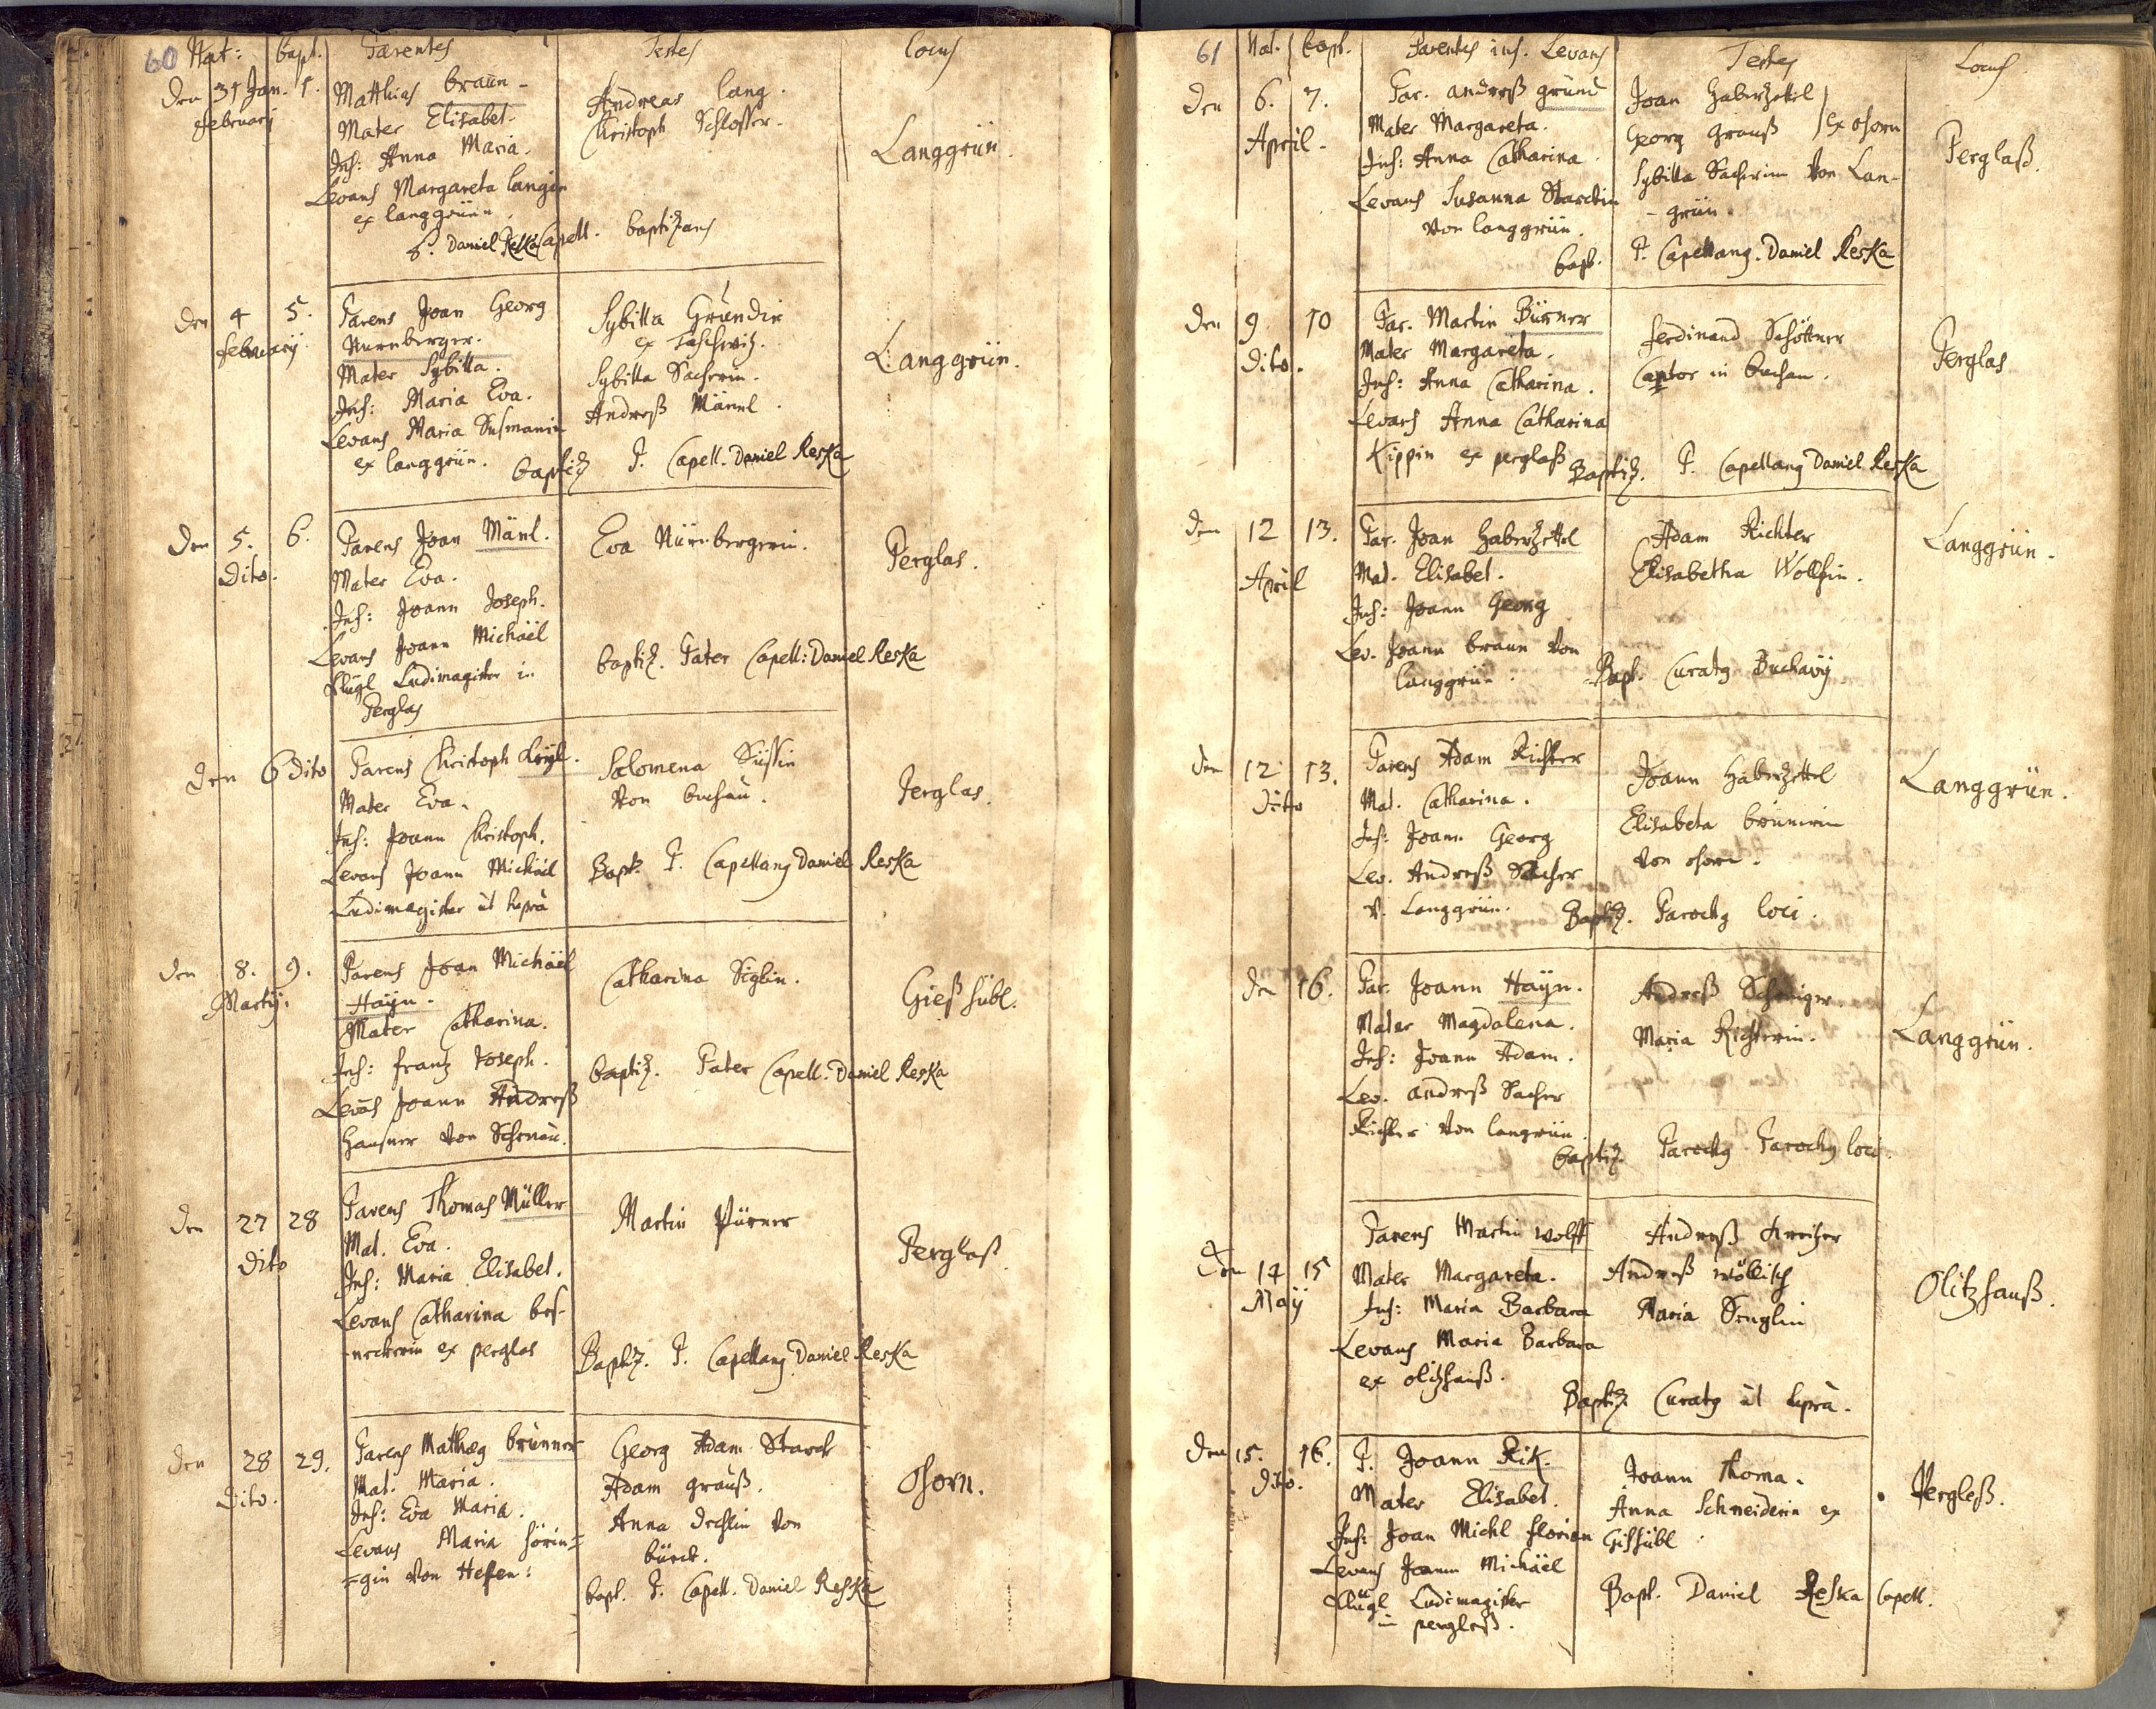 60 Nat: bapt. Parentes Testes locus
Den 31 Jan. 1. februarij
Matthias braun -
Mater Elisabet.
Inf: Anna Maria.
Levans Margareta langin
ex langgrünn.
Andreas lang.
Christoph Schlosser.
P. Daniel Reska Capell. baptizans
Langgrün.
Den 4 5.
februarij
Parens Joan Georg
Nurnberger.
Mater Sybilla.
Inf: Maria Eva.
Levans Maria Susmanin
ex langgrün.
Sybilla Gründin
ex
Sybilla Sacherin.
Andreß Männl.
baptiz P. Capell. Daniel Reska
Langgrün.
Den 5. 6.
Dito.
Parens Joan Mänl.
Mater Eva.
Inf: Joann Joseph.
Levans Joann Michäel
Flügl Ludimagister in
Perglas
Eva Nürnbergerin.
baptiz. Pater Capell: Daniel Reska
Perglas.
Den 6 Dito
Parens Christoph
Mater Eva.
Inf: Joann Christoph.
Levans Joann Michäel
Ludimagister ut supra
Salomena Süssin
von buchau.
Bapt. P. Capellang Daniel Reska
Perglas.
Den 8. 9.
Martij.
Parens Joan Michäel
Haÿn.
Mater Catharina.
Inf: frantz Joseph.
Levās Joann Andreß
Hausner von Schönau.
Catharina Siglin.
baptiz. Pater Capell. Daniel Reska
Gießhübl.
Den 27 28
Dito
Parens Thomas Müller
Mat. Eva.
Inf: Maria Elisabet.
Levans Catharina bes-
-neckerin ex perglas
Martin Pürner
Baptiz. P. Capellang Daniel Reska
Perglaß
Den 28 29.
Dito.
Parens Mathæg brünner
Mat. Maria.
Inf: Eva Maria.
Levans Maria hörin=
=gin von Hefen:
Georg Adam Starck
Adam grauß.
Anna Drechslin von
bürck.
bapt. P. Capell. Daniel Reska
Ohorn.
61 Nat. bapt. Parentes inf. Levans Testes Locus
Den 6. 7.
April.
Par. andreß grund
Mater Margareta.
Inf: Anna Catharina.
Levans Susanna Starckin
von langgrün.
Joan haberzettl
Georg grauß } ex ohorn
Sybilla Sacherin von Lan-
-grün.
bapt. P. Capellang. Daniel Reska
Perglaß.
Den 9 10
Dito.
Par. Martin Bürner
Mater Margareta.
Inf: Anna Catharina.
Levans Anna Catharina
Kippin ex perglaß
ferdinand Schöttner
Cantor in buchau.
Baptiz. P. Capellang Daniel Reska
Perglas
Den 12 13.
April
Par. Joan haberzettl
Mat. Elisabet.
Inf: Joann Georg
Lev. Joann braun von
langgrün.
Adam Richter
Elisabetha Wolffin.
Bapt. Curatg Buchavÿ
Langgrün.
Den 12 13.
Dito
Parens Adam Richter
Mat. Catharina.
Inf: Joann Georg
Lev. Andreß Sacher
v. Langgrün.
Joann haberzettl
Elisabeta brünnerin
von ohorn.
Baptiz. Parochg loci.
Langgrün.
Den 16.
Par. Joann Haÿn.
Mater Magdalena.
Inf: Joann Adam.
Lev. andreß Sacher
Richter von langrün.
Andreß
Maria Richterin.
baptiz Parochg Parochg loci.
Langgrün.
Den 14 15
Maÿ
Parens Martin wolff
Mater Margareta.
Inf: Maria Barbara
Levans Maria Barbara
ex olitzhauß.
Andreß
Andreß wöllisch
Maria
Baptiz Curatg ut supra.
Olitzhauß.
Den 15. 16.
Dito.
P. Joann Rik.
Mater Elisabet.
Inf: Joan Michl florian
Levans Joann Michäel
Flügl Ludimagister
in pergleß.
Joann Thoma.
Anna Schneiderin ex
Gishübl.
Bapt. Daniel Reska Capell.
Pergleß.